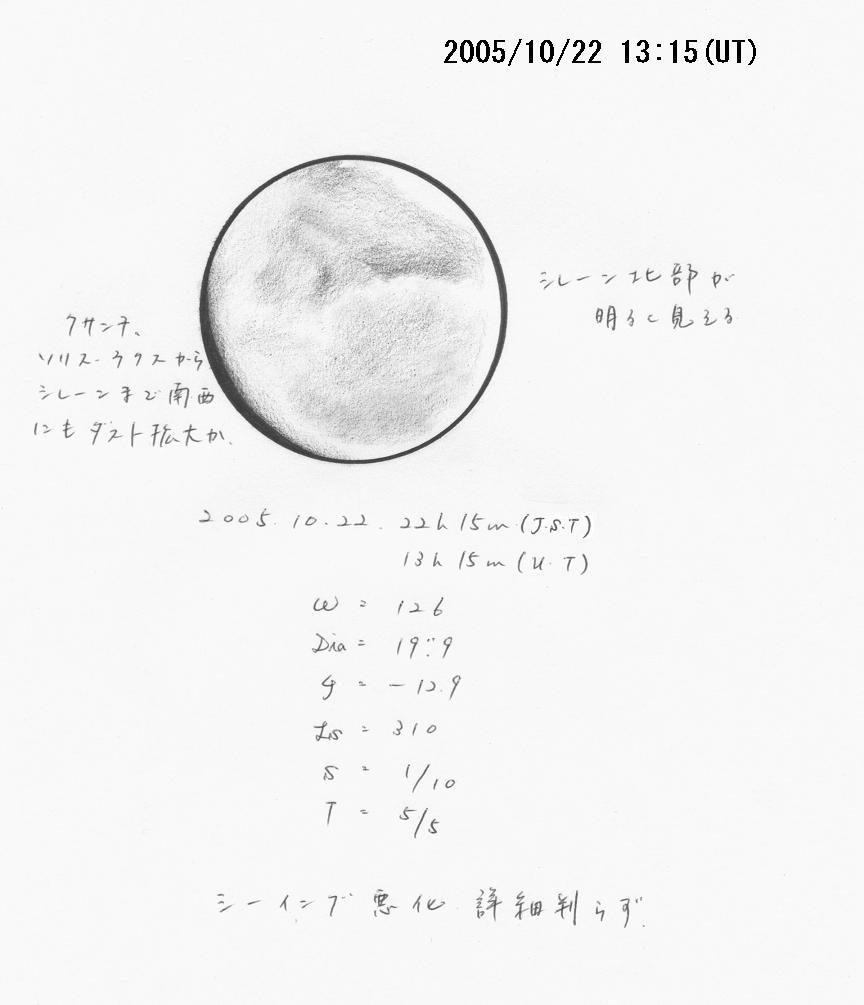 2005/10/22 13:15(UT)
シレーン北部が
明るく見える
クサンテ、
ソリス・ラクスから
シレーンまで南西
にもダスト拡大か.
2005.10.22. 22h 15m (J.S.T)
13h 15m (U.T)
ω = 126
Dia = 19".9
φ = -12.9
Ls = 310
S = 1/10
T = 5/5
シーイング悪化 詳細判らず.